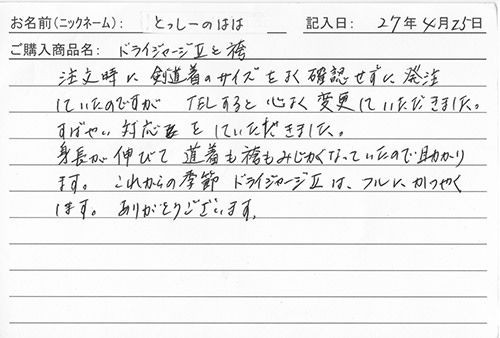 お名前(ニックネーム): とっしーのはは 記入日: 27年4月25日
ご購入商品名: ドライジャージⅡと袴
注文時に剣道着のサイズをよく確認せずに発注
していたのですが TELすると心よく変更していただきました。
すばやい対応をしていただきました。
身長が伸びて道着も袴もみじかくなっていたので助かり
ます。これからの季節 ドライジャージⅡは、フルにかつやく
します。ありがとうございます。